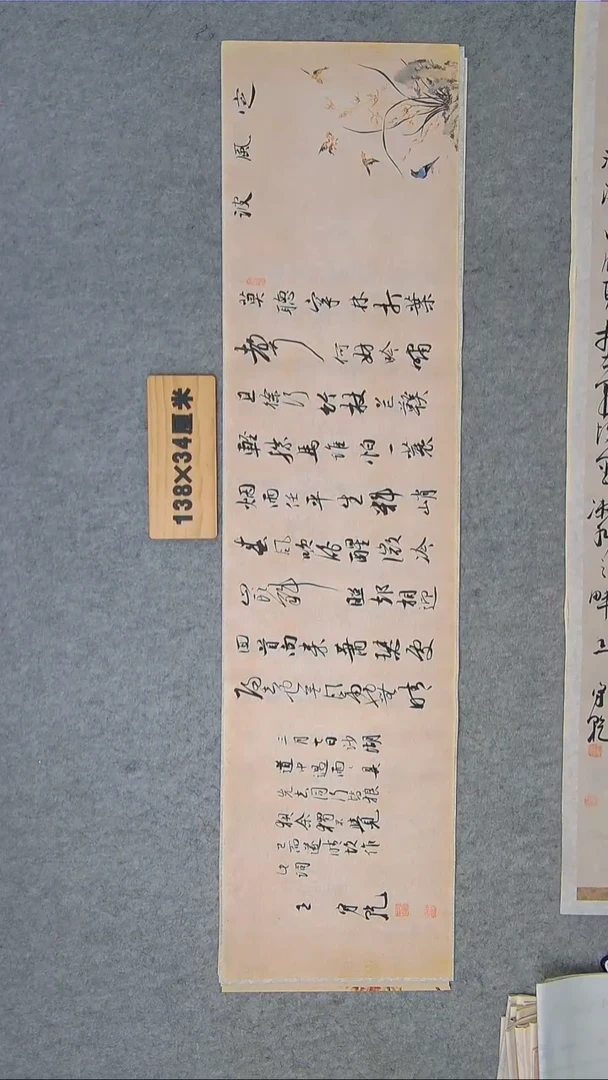 定風波
莫聽穿林打葉
聲何妨吟嘯
且徐行竹杖芒鞋
輕勝馬誰怕一蓑
烟雨任平生料峭
春風吹酒醒微冷
山頭斜照却相迎
回首向来蕭瑟處
歸去也無風雨也無晴
三月七日沙湖
道中遇雨雨具
先去同行皆狼
狽余獨不覺
已而遂晴故作
此詞
王
138×34厘米